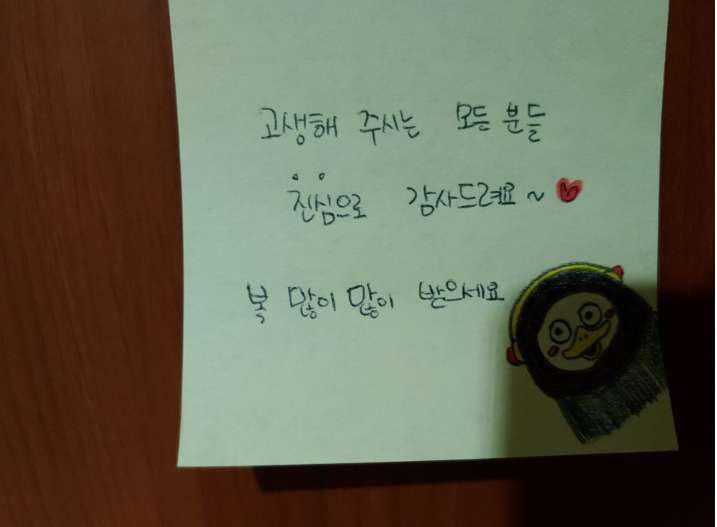 고생해 주시는 모든 분들
진심으로 감사드려요~ ♥
복 많이 많이 받으세요